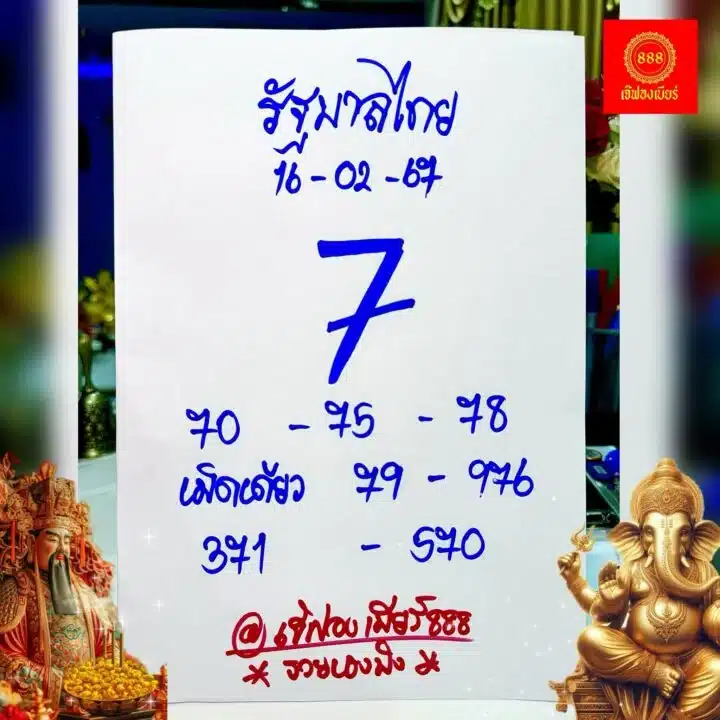 888
เจ๊ฟองเบียร์
รัฐบาลไทย
16-02-67
7
70 - 75 - 78
เม็ดเดียว 79 - 976
371 - 570
@เจ๊ฟองเบียร์888
* รวยเฮงปัง *